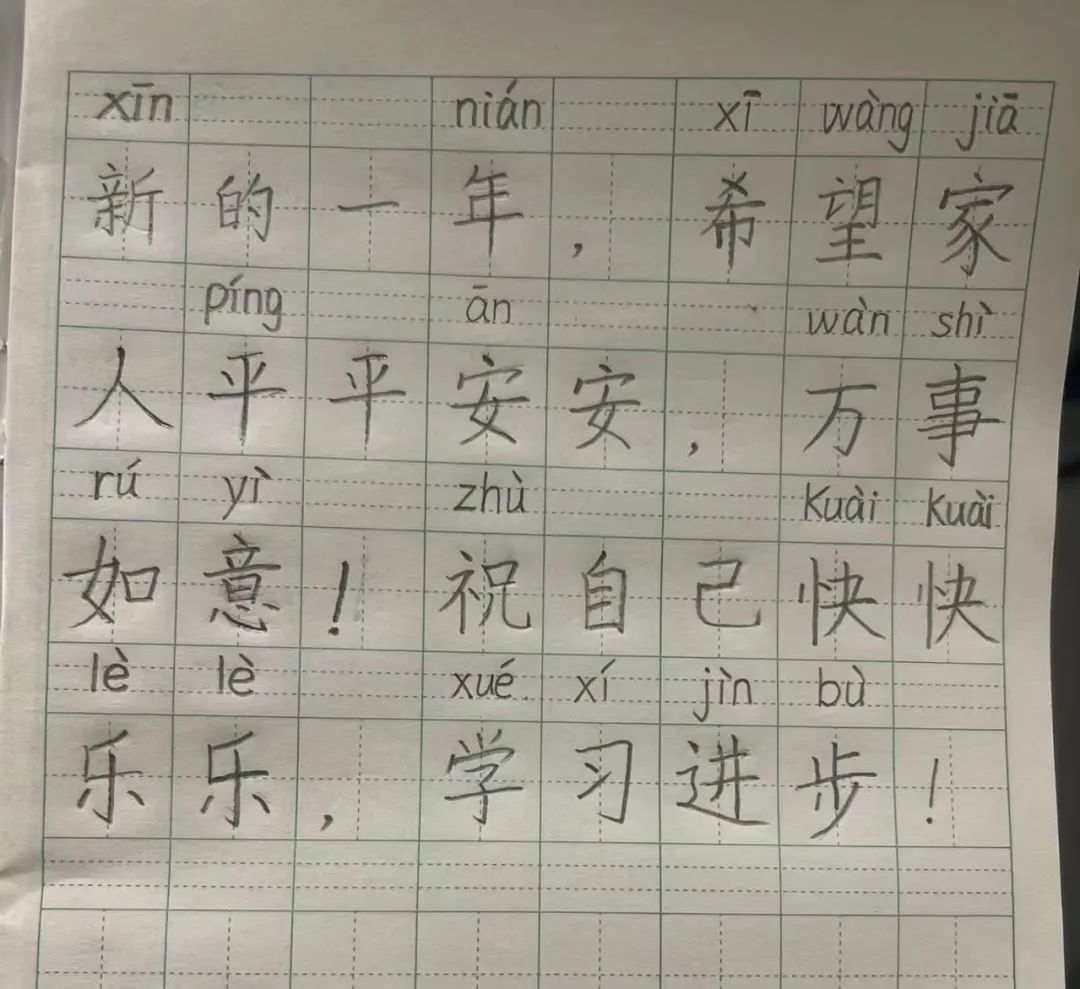 xīn nián xī wàng jiā
新的一年，希望家
píng ān wàn shì
人平平安安，万事
rú yì zhù Kuài Kuài
如意！祝自己快快
lè lè xué xí jìn bù
乐乐，学习进步！